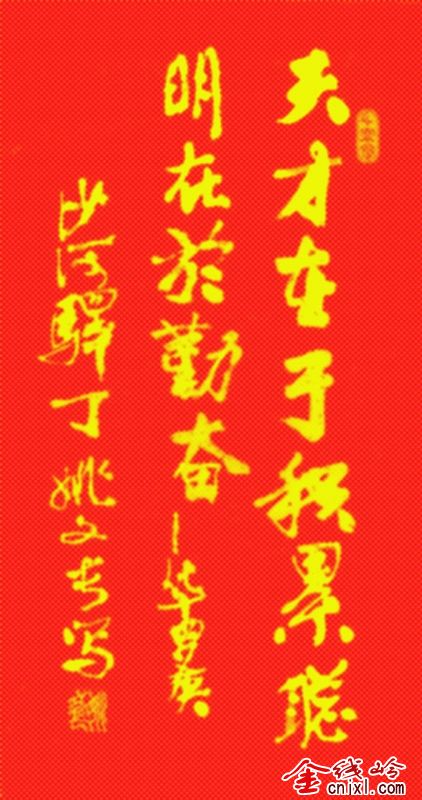 天才在于积累聪
明在於勤奋—华罗庚
沙河驛丁姚文写
金线岭
cnixl.com